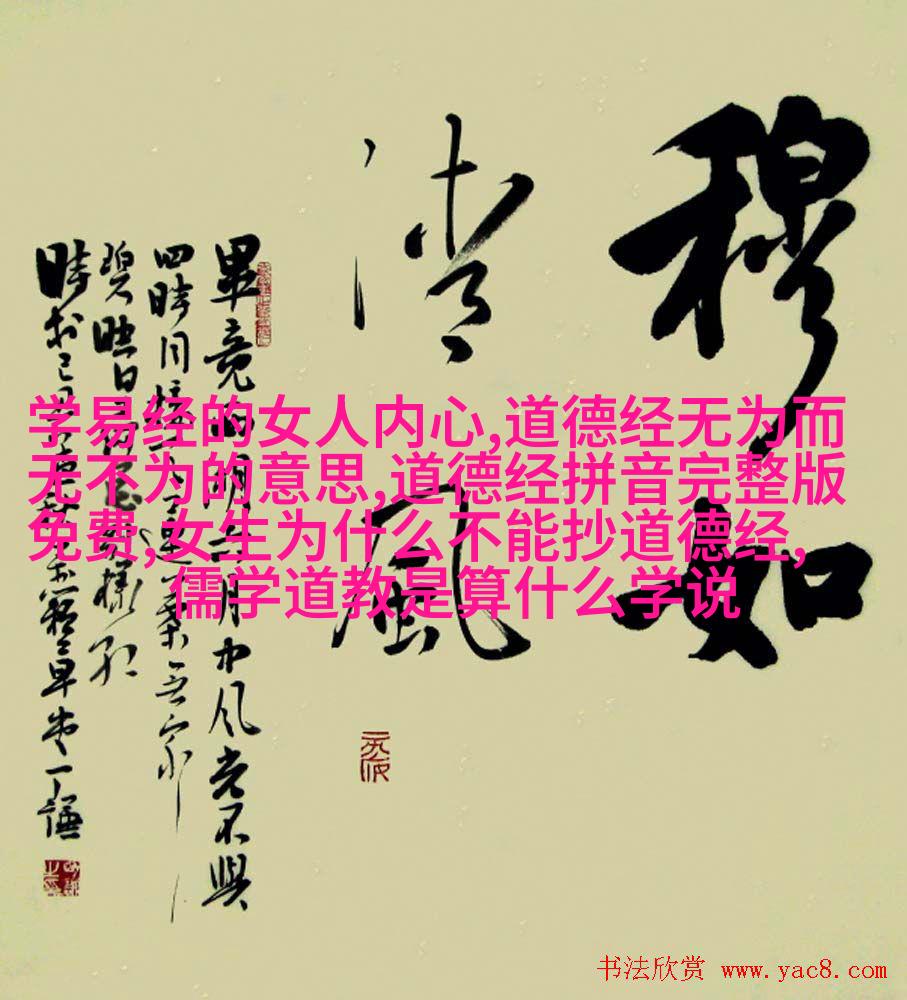 穆如
清風
畢竟西湖六月中風光不與
四時同接天蓮葉無窮
碧映日荷花別樣紅
学易经的女人内心,道德经无为而
无不为的意思,道德经拼音完整版
免费,女生为什么不能抄道德经,
儒学道教是算什么学说
书法欣赏 www.yac8.com